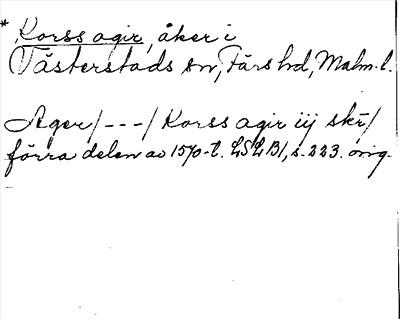 * Korss agir, åker i
Västerstads sn, Färs hd, Malm. l.
Ager/---/Korss agir iij skr̄/
förra delen av 1570-t. LSLB1, s. 223. orig.